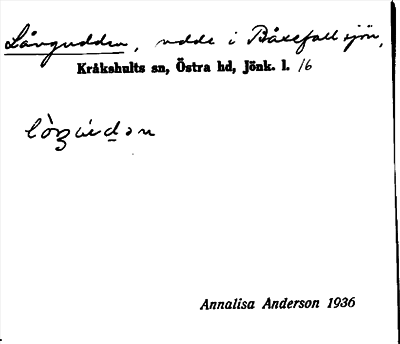 Långudden, udde i Båxefallsjön,
Kråkshults sn, Östra hd, Jönk. l. 16
Annalisa Anderson 1936